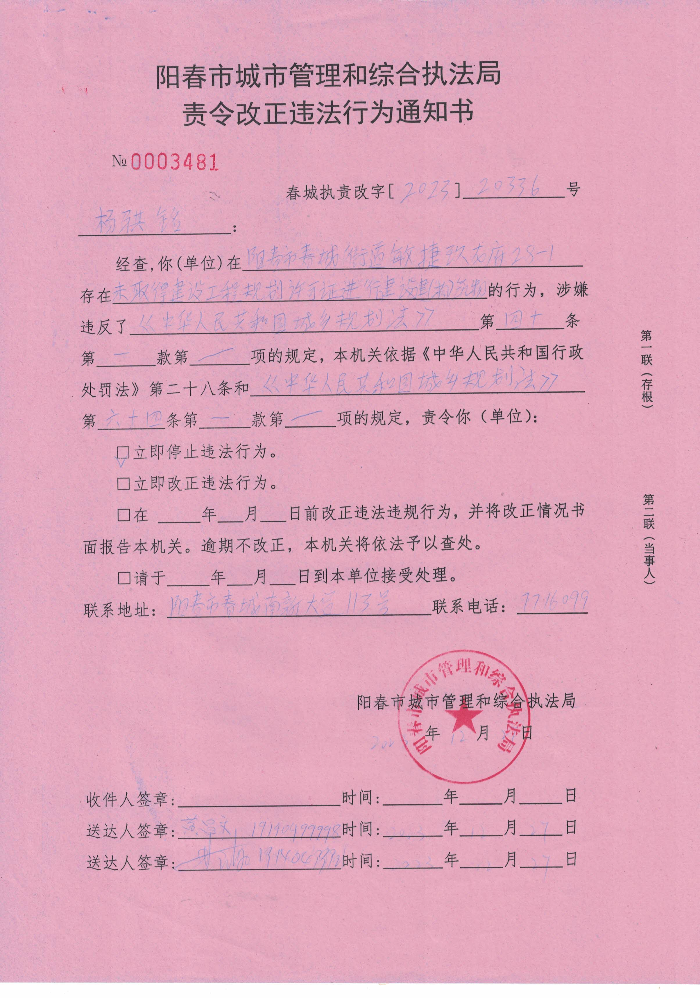 阳春市城市管理和综合执法局
责令改正违法行为通知书
№ 0003481
春城执责改字[ 2023 ] 20336 号
杨 :
经查,你(单位)在阳春市春城街道敏捷玖龙府28-1
存在未取得建设工程规划许可证进行建设的行为，涉嫌
违反了《中华人民共和国城乡规划法》第四十条
第一款第／项的规定，本机关依据《中华人民共和国行政
处罚法》第二十八条和《中华人民共和国城乡规划法》
第六十四条第一款第／项的规定，责令你（单位）：
☑立即停止违法行为。
□立即改正违法行为。
□在 年 月 日前改正违法违规行为，并将改正情况书
面报告本机关。逾期不改正，本机关将依法予以查处。
□请于 年 月 日到本单位接受处理。
联系地址：阳春市春城南新大道113号 联系电话：7716099
阳春市城市管理和综合执法局
年 月 日
阳春市城市管理和综合执法局
收件人签章: 时间: 年 月 日
送达人签章: 时间: 年 月 27日
送达人签章: 时间: 年 月 27日
第一联（存根）
第二联（当事人）